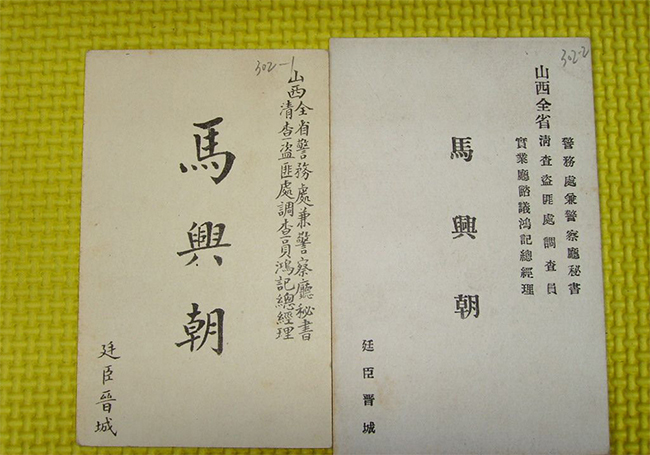 302-1
山西全省警務處兼警察廳秘書
清查盜匪處調查員鴻記總經理
馬興朝
廷臣晉城
302-2
山西全省
警務處兼警察廳秘書
清查盜匪處調查員
實業廳諮議鴻記總經理
馬興朝
廷臣晉城